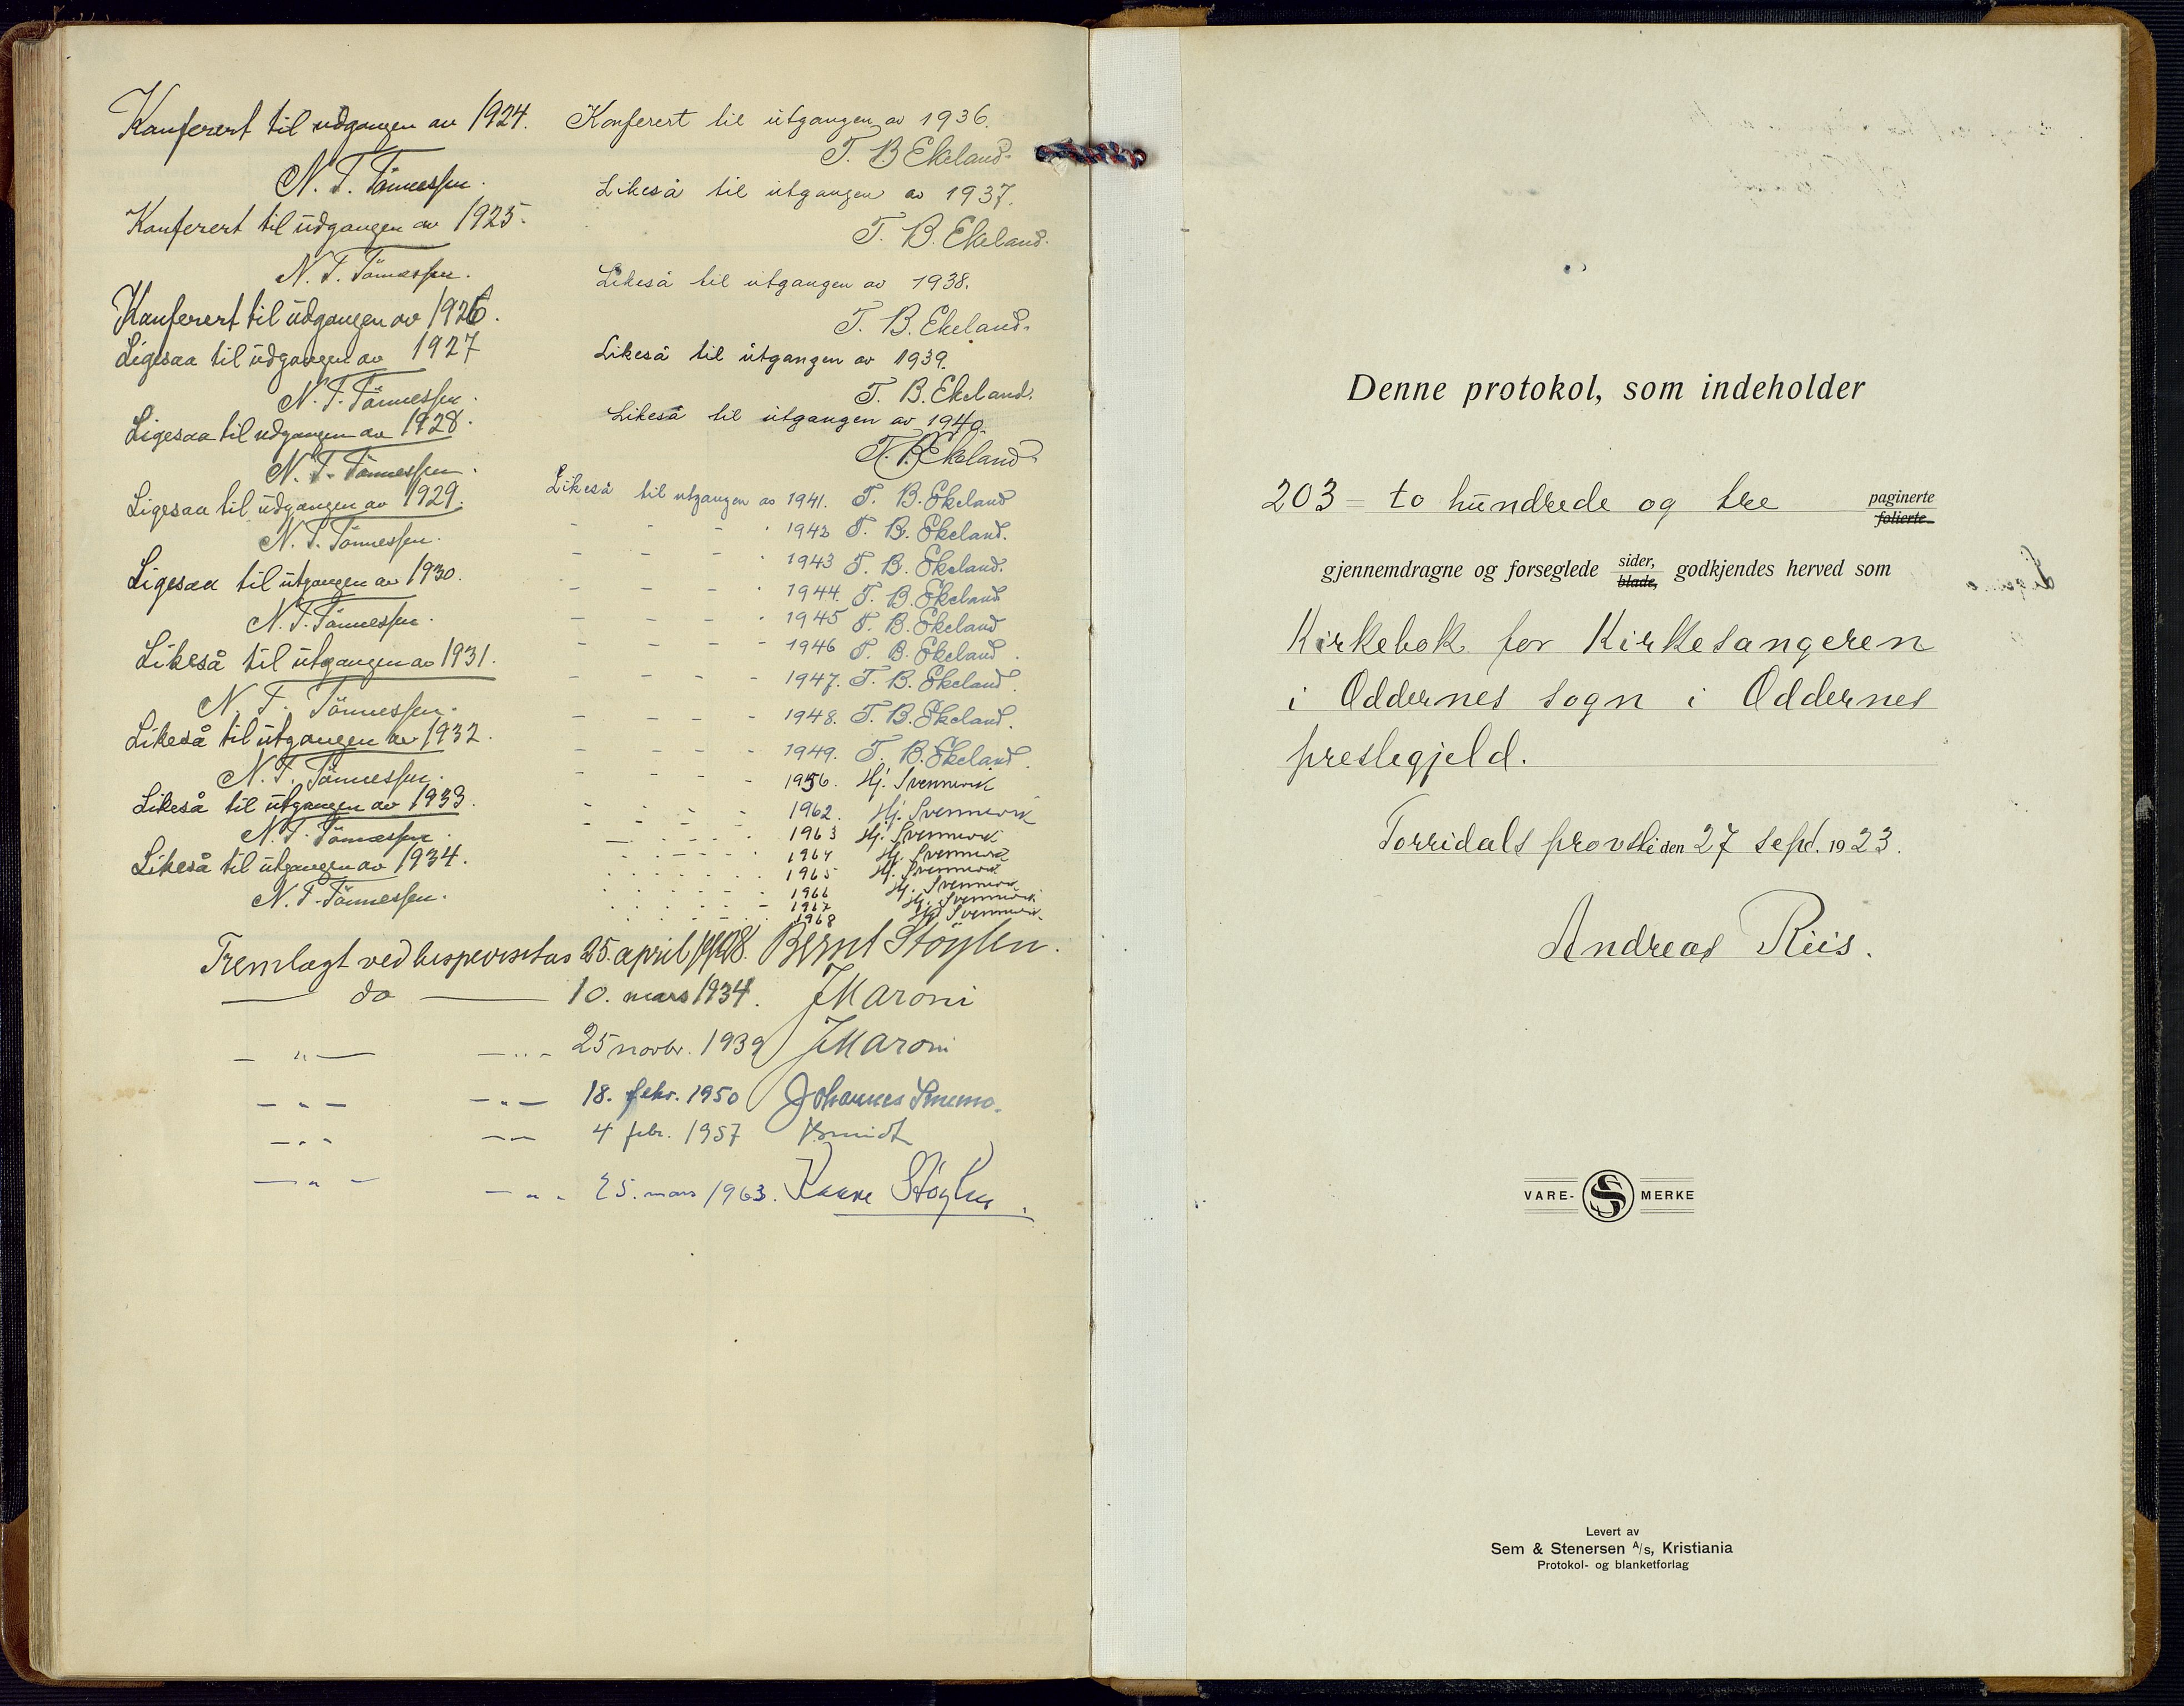 Konferert til udgangen av 1924.
N. T. Tönnessen.
Konferert til udgangen av 1925.
N. T. Tönnessen.
Konferert til udgangen av 1926.
Ligesaa til udgangen av 1927
N. T. Tönnessen.
Ligesaa til udgangen av 1928.
N. T. Tönnessen.
Ligesaa til udgangen av 1929.
N. T. Tönnessen.
Ligesaa til utgangen av 1930.
N. T. Tönnessen.
Likeså til utgangen av 1931.
N. T. Tönnessen.
Likeså til utgangen av 1932.
N. T. Tönnessen.
Likeså til utgangen av 1933.
N. T. Tönnessen.
Likeså til utgangen av 1934.
N. T. Tönnessen.
Konferert til utgangen av 1936.
T. B. Ekeland.
Likeså til utgangen av 1937.
T. B. Ekeland.
Likeså til utgangen av 1938.
T. B. Ekeland.
Likeså til utgangen av 1939.
T. B. Ekeland.
Likeså til utgangen av 1940.
T. B. Ekeland.
Likeså til utgangen av 1941. T. B. Ekeland
- - - - 1942 T. B. Ekeland.
- - - - 1943 T. B. Ekeland.
- - - - 1944. T. B. Ekeland
- - - - 1945 T. B. Ekeland
- - - - 1946 T. B. Ekeland.
- - - - 1947. T. B. Ekeland.
- - - - 1948. T. B. Ekeland.
- - - - 1949. T. B. Ekeland.
- - - - 1956. Hj. Svennevik
- - - - 1962. Hj. Svennevik
- - - - 1963 Hj. Svennevik
- - - - 1964 Hj. Svennevik
- - - - 1965 Hj. Svennevik
- - - - 1966 Hj. Svennevik
- - - - 1967 Hj. Svennevik
- - - - 1968 Hj. Svennevik
Fremlagt ved bispevisitas 25. april 1928. Bernt Støylen.
— do — 10. mars 1934. JMaroni
— " — — " — 25 novbr. 1939 JMaroni
— " — — " — 18. febr. 1950 Johannes Smemo.
— " — — — 4 febr. 1957 Smidt
— " — — " — 25. mars 1963. Kaare Støylen.
Denne protokol, som indeholder
203 = to hundrede og tre paginerte
folierte
gjennemdragne og forseglede sider, godkjendes herved som
blade,
Kirkebok for Kirkesangeren
i Oddernes sogn i Oddernes
prestegjeld.
Torridals provsti den 27 sept. 1923.
Andreas Riis.
VARE- S MERKE
Levert av
Sem & Stenersen A/s, Kristiania
Protokol- og blanketforlag